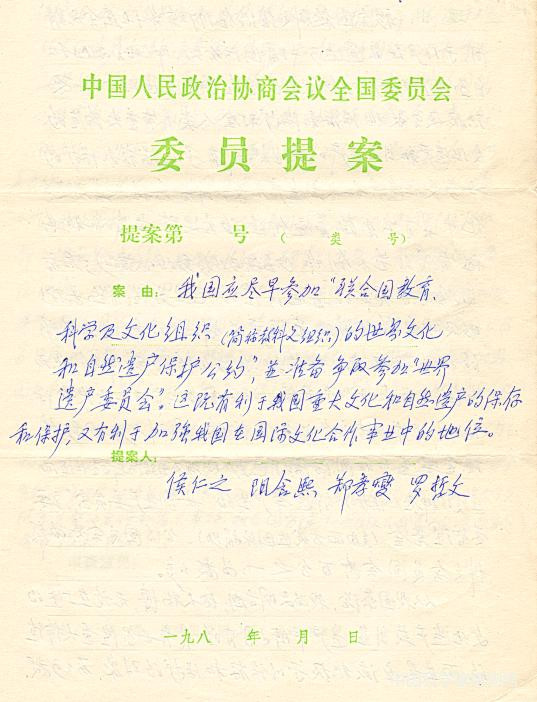 中国人民政治协商会议全国委员会
委员提案
提案第 号 （ 类 号）
案由：我国应尽早参加“联合国教育、
科学及文化组织（简称教科文组织）的世界文化
和自然遗产保护公约”，并准备争取参加“世界
遗产委员会”。这既有利于我国重大文化和自然遗产的保存
和保护，又有利于加强我国在国际文化合作事业中的地位。
提案人：
侯仁之 阳含熙 郑孝燮 罗哲文
一九八 年 月 日